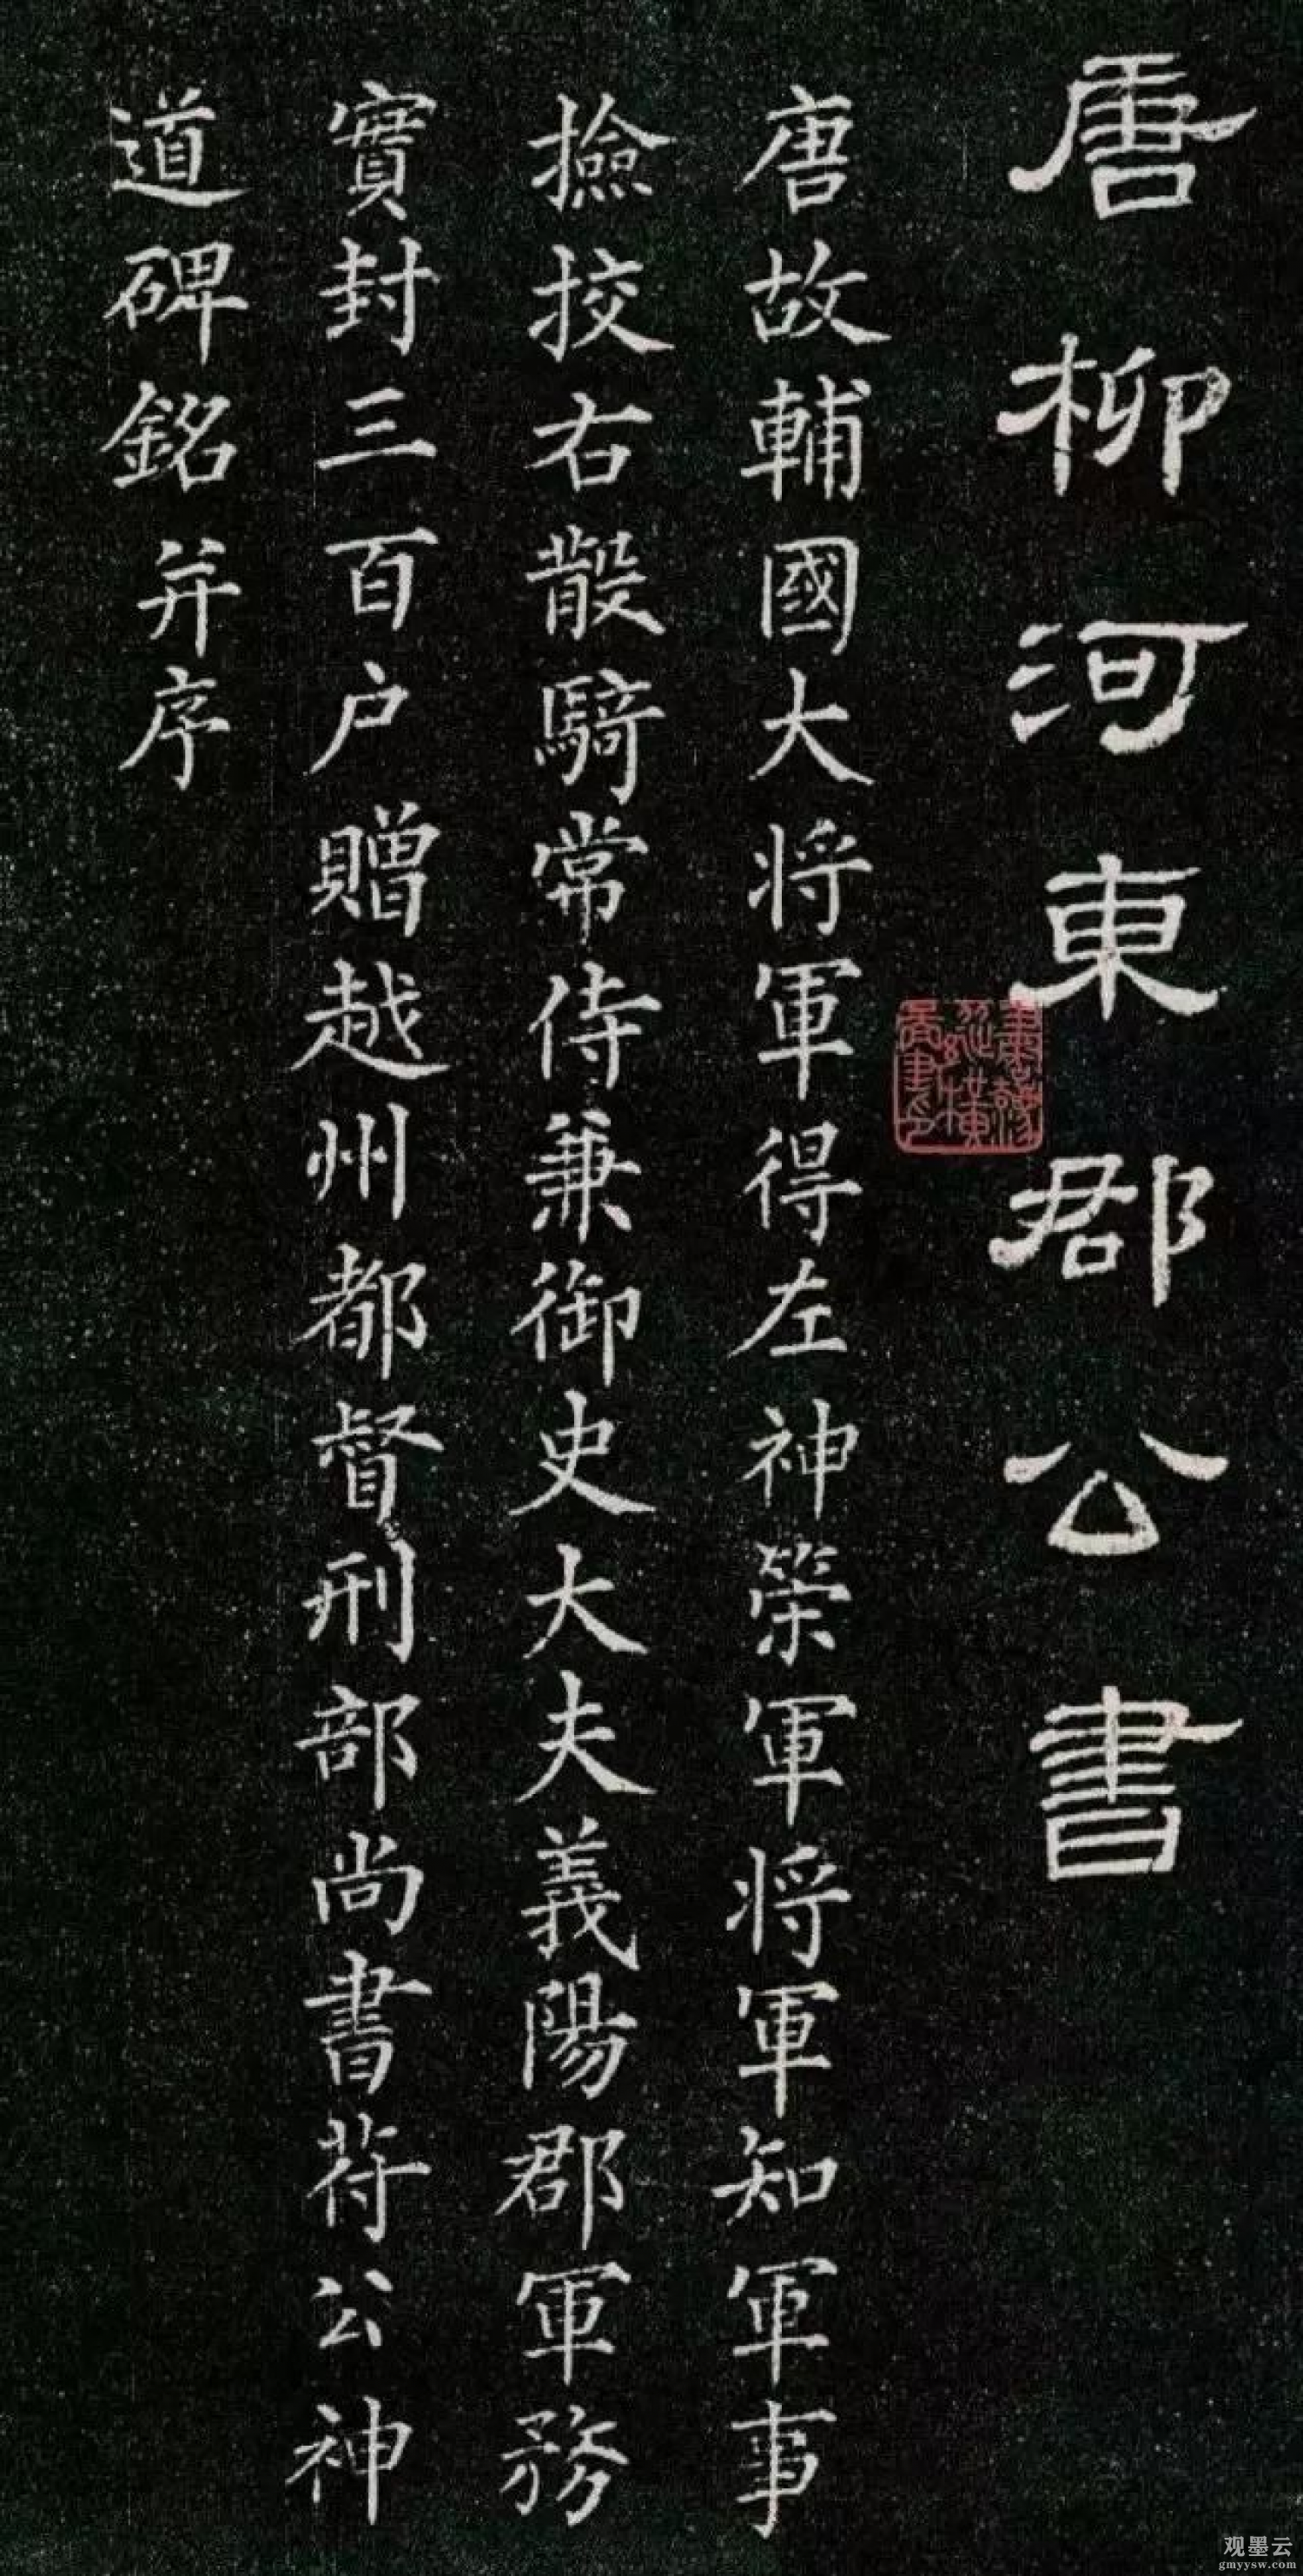 唐柳河東郡公書
唐故輔國大将軍得左神策軍将軍知軍事
撿挍右散騎常侍兼御史大夫義陽郡軍務
實封三百户贈越州都督刑部尚書苻公神
道碑銘并序
观墨云
gmyysw.com